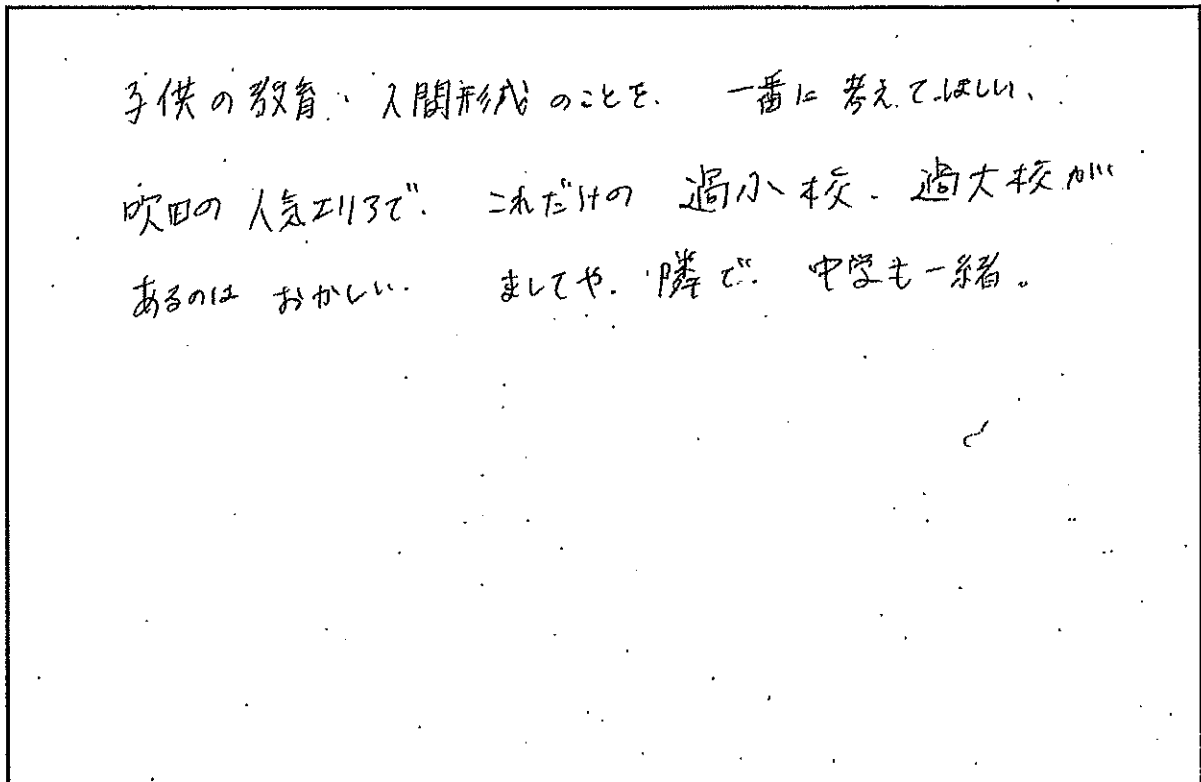 子供の教育、人間形成のことを、一番に考えてほしい、
吹田の人気エリアで、これだけの過小校、過大校が
あるのはおかしい。ましてや、隣で、中学も一緒。